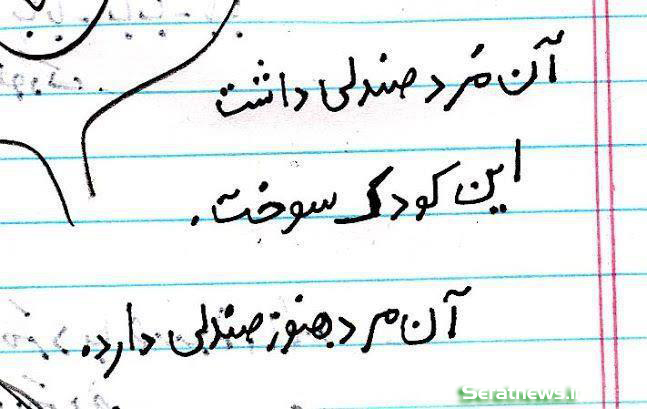 آن مُرد صندلی داشت
این کودک سوخت.
آن مرد هنوز صندلی دارد.
Seratnews.i